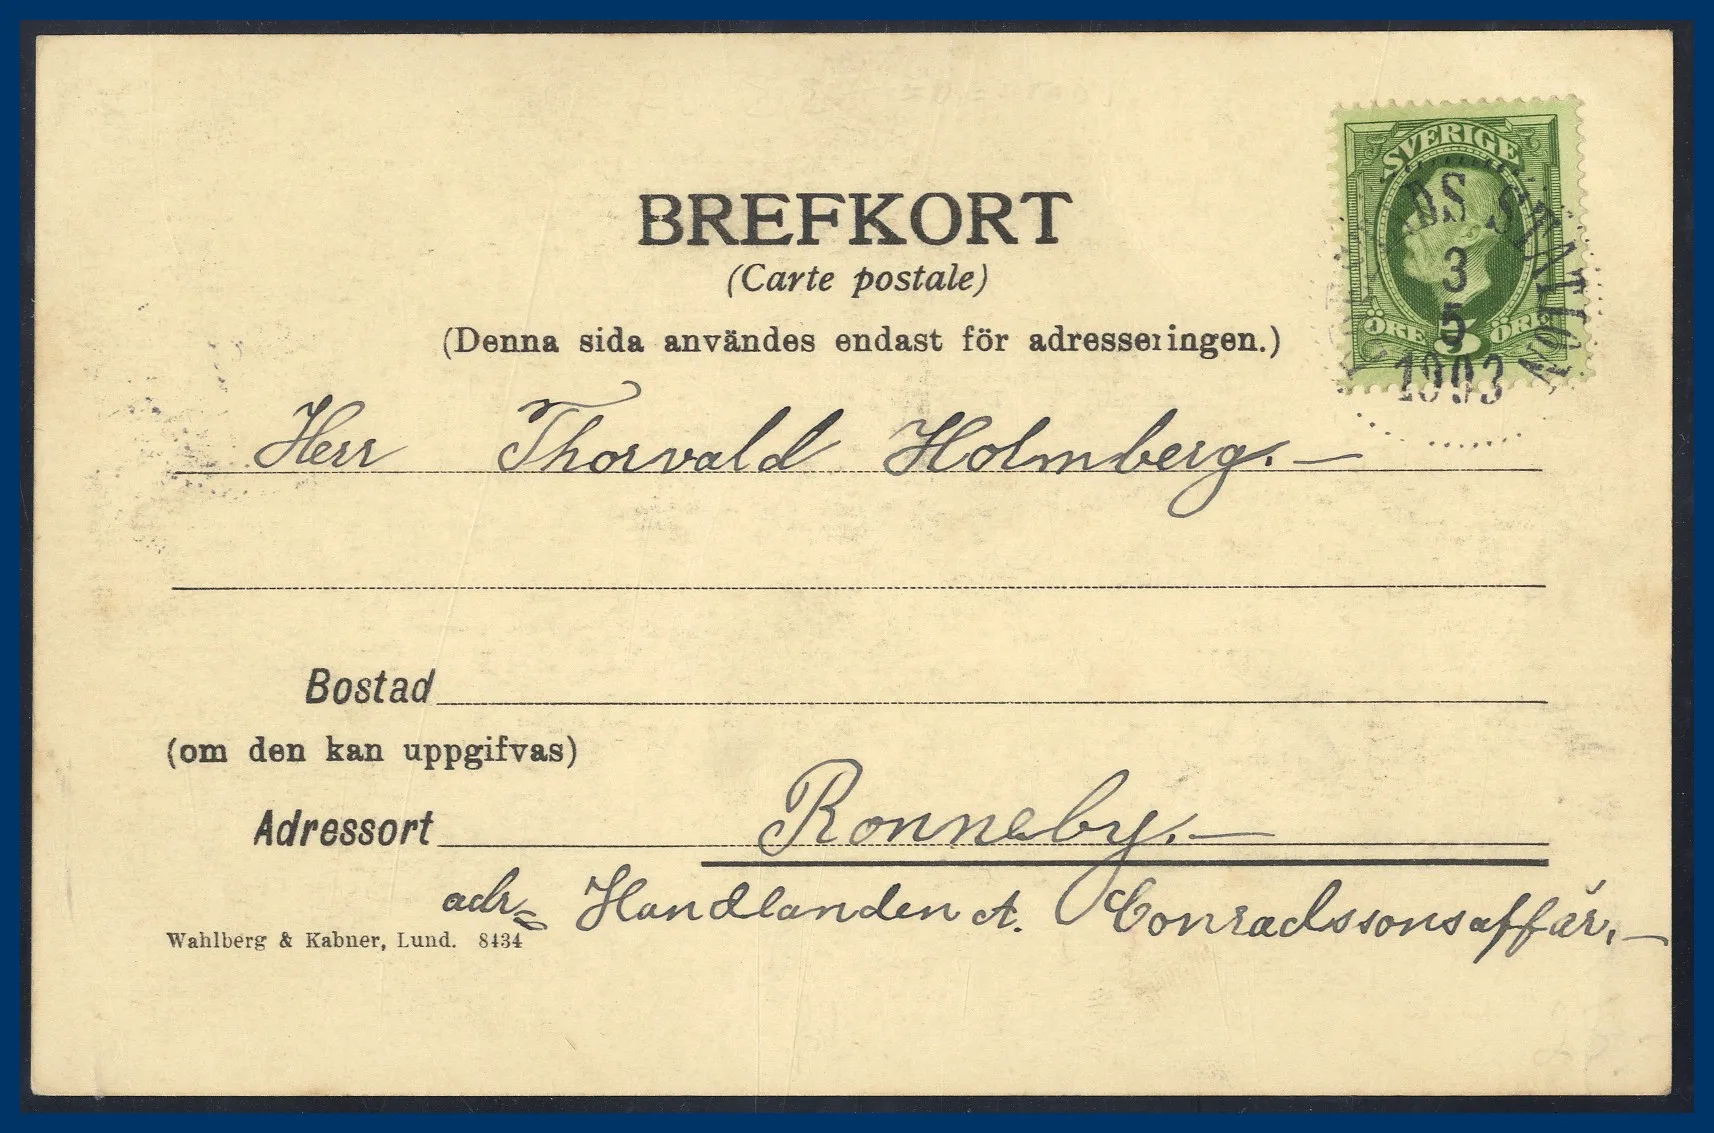 BREFKORT
(Carte postale)
(Denna sida användes endast för adresseringen.)
SVERIGE
ÖRE 5 ÖRE
DS STATION
3
5
1903
Herr Thorvald Holmberg.
Bostad
(om den kan uppgifvas)
Adressort Ronneby.
adr. Handlanden A. Conradssons affär.
Wahlberg & Kabner, Lund. 8434